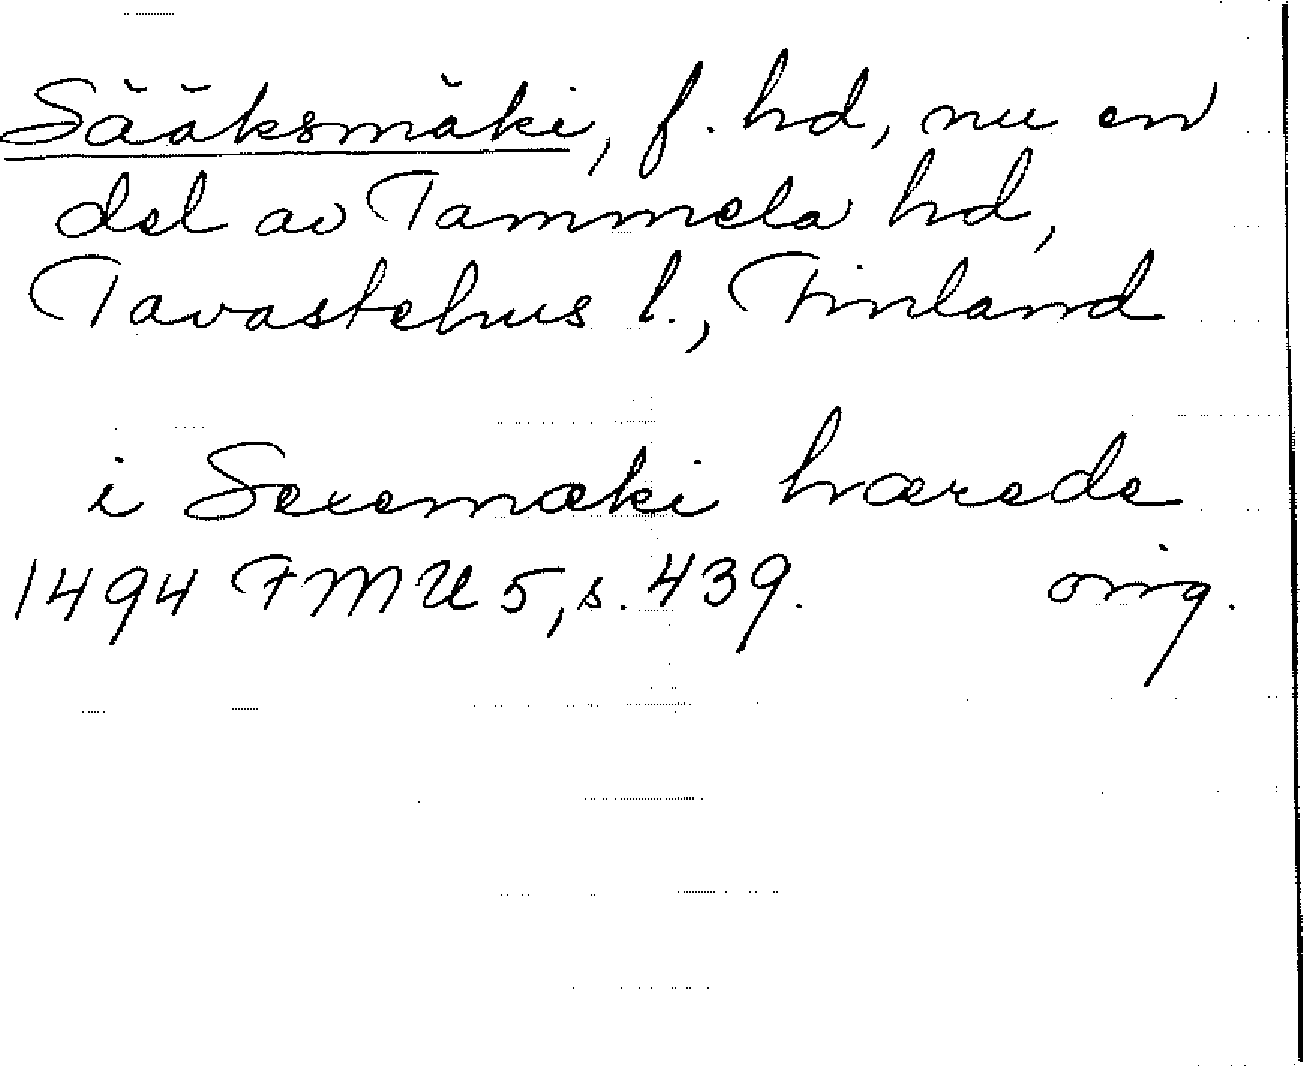 Sääksmäki, f. hd, nu en
del av Tammela hd,
Tavastehus l., Finland
i Sexemæki hærede
1494 FMU 5, s. 439. orig.